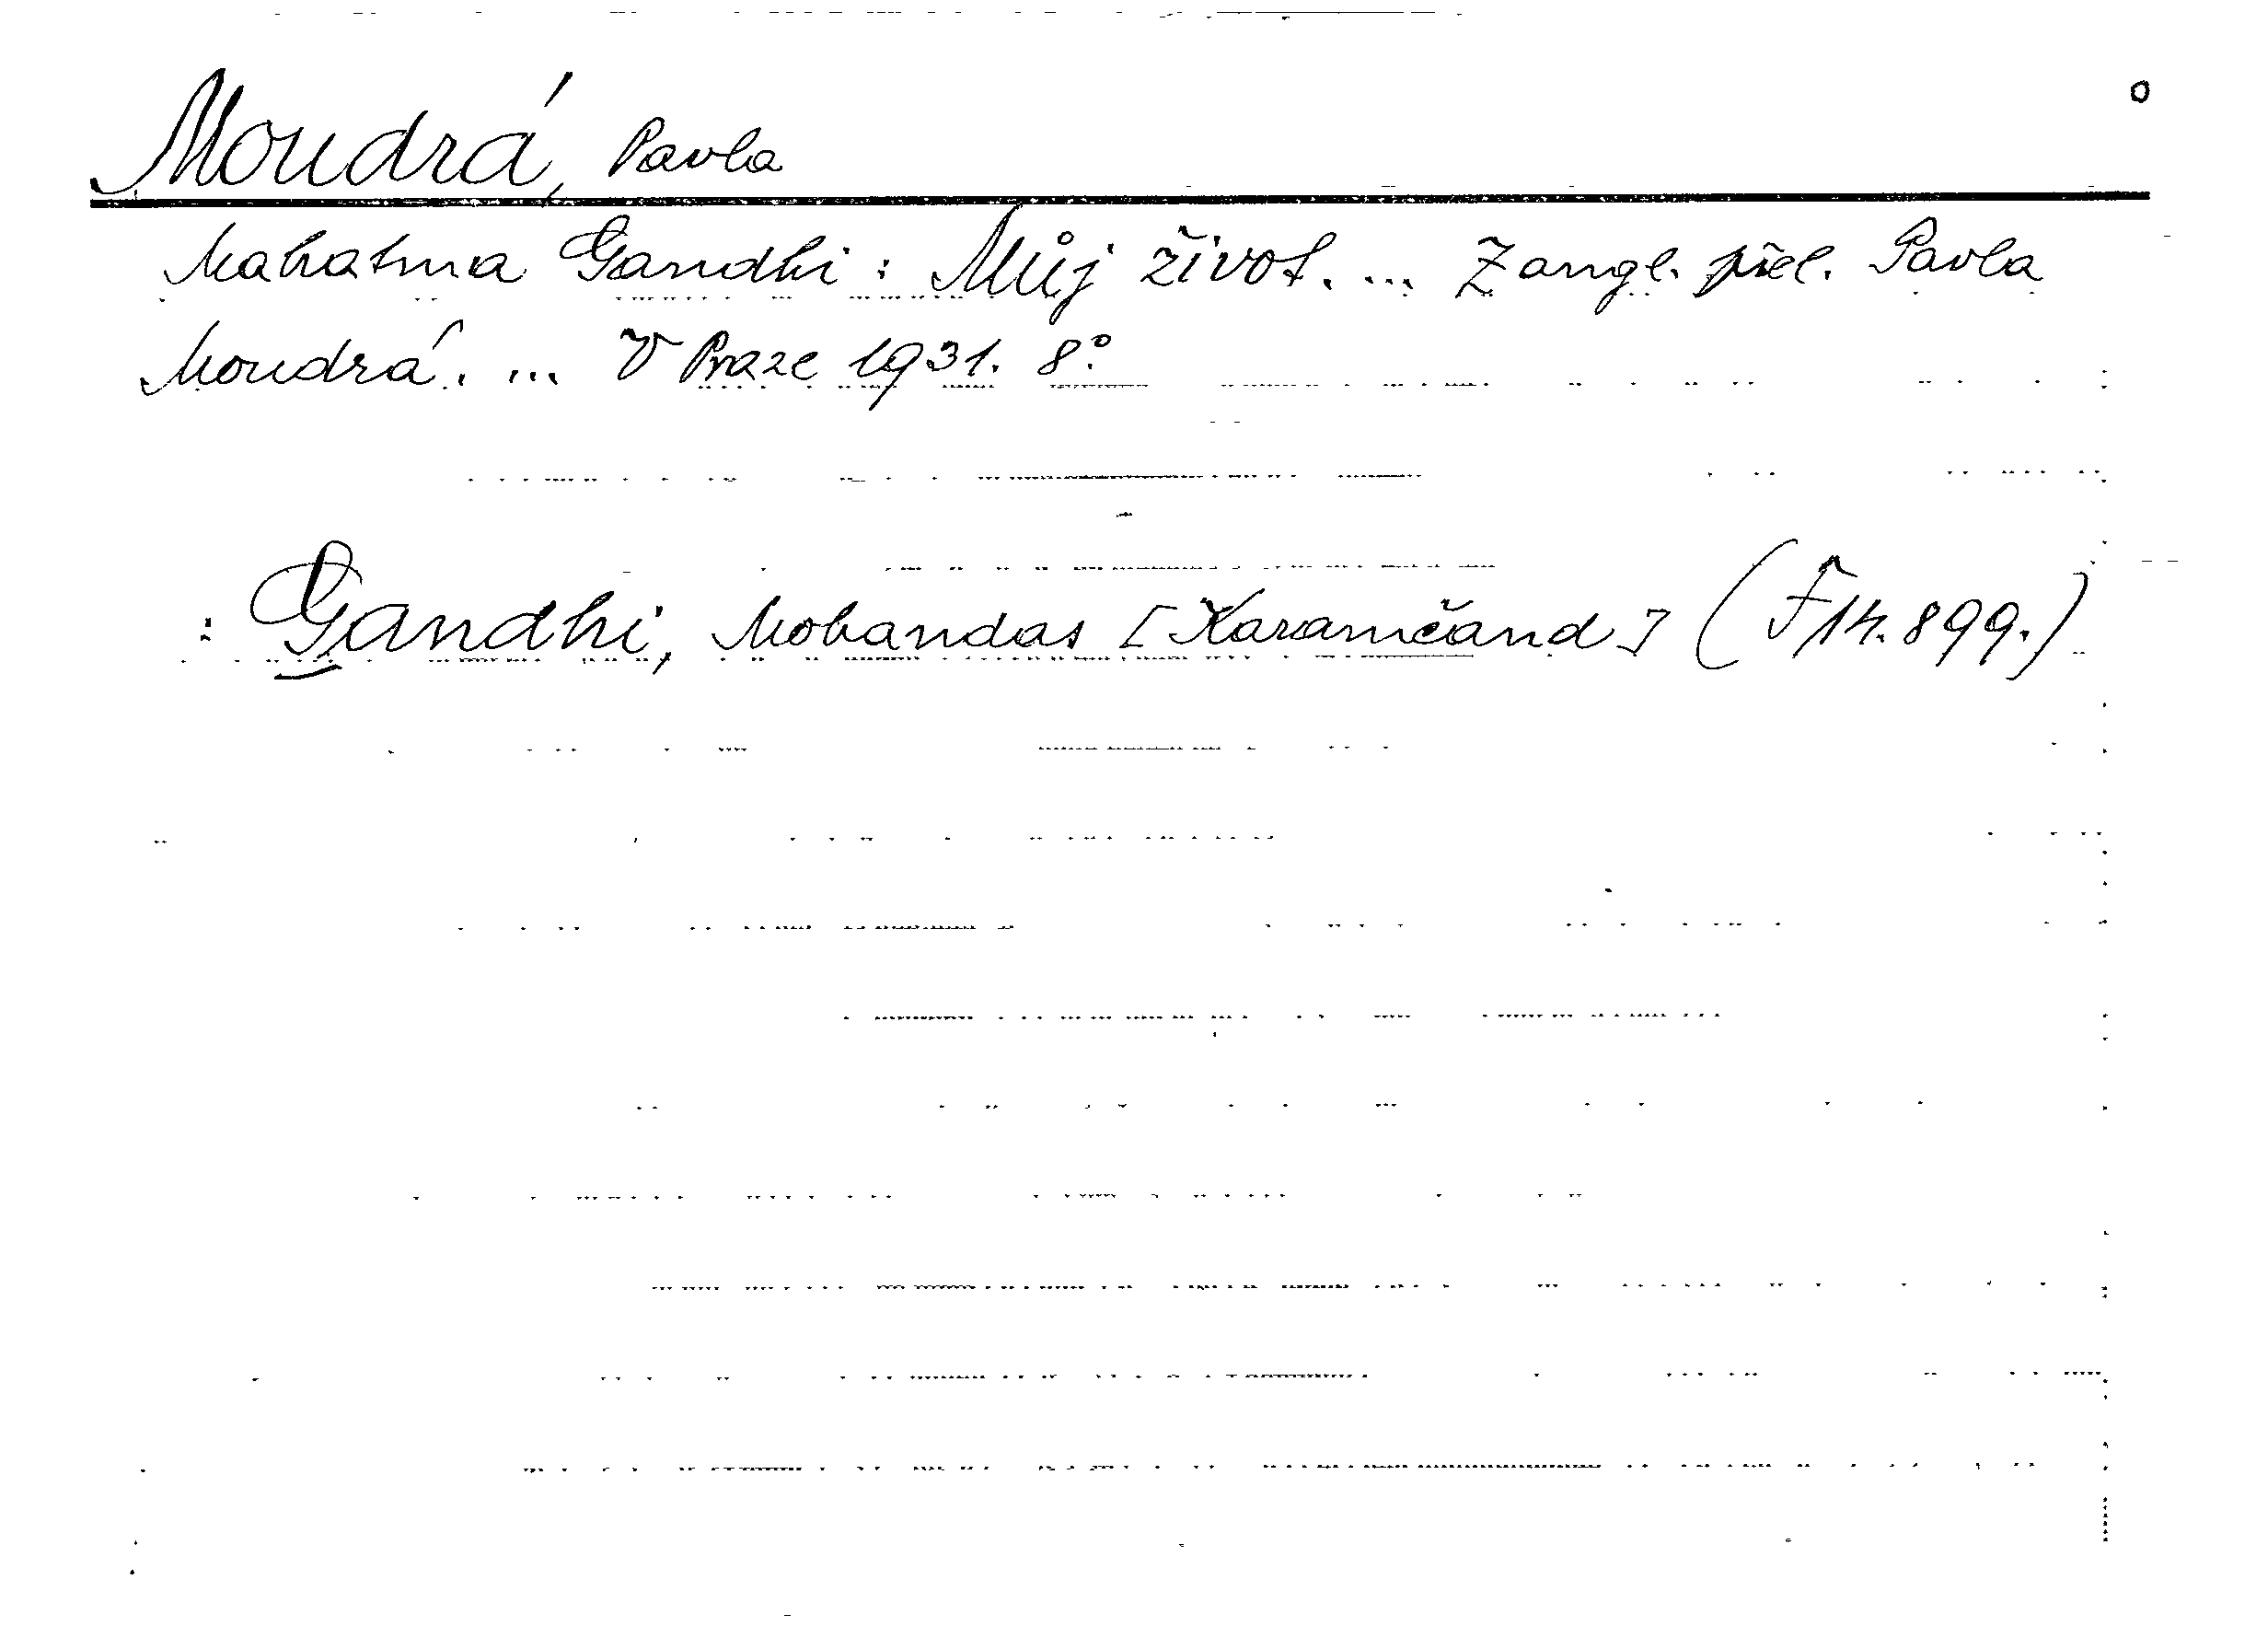 Moudrá, Pavla
Mahatma Gandhi: Můj život. ... Z angl. přel. Pavla
Moudrá. ... V Praze 1931. 8°.
: Gandhi, Mohandas [Karamčand] (F 14.899.)